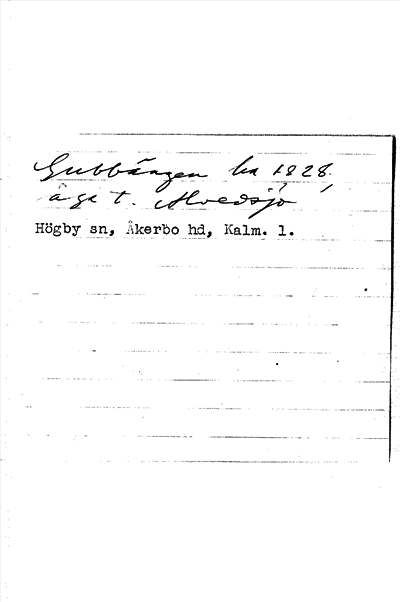 Gubbängen ha 1828,
äga t. Alvedsjö
Högby sn, Åkerbo hd, Kalm. l.